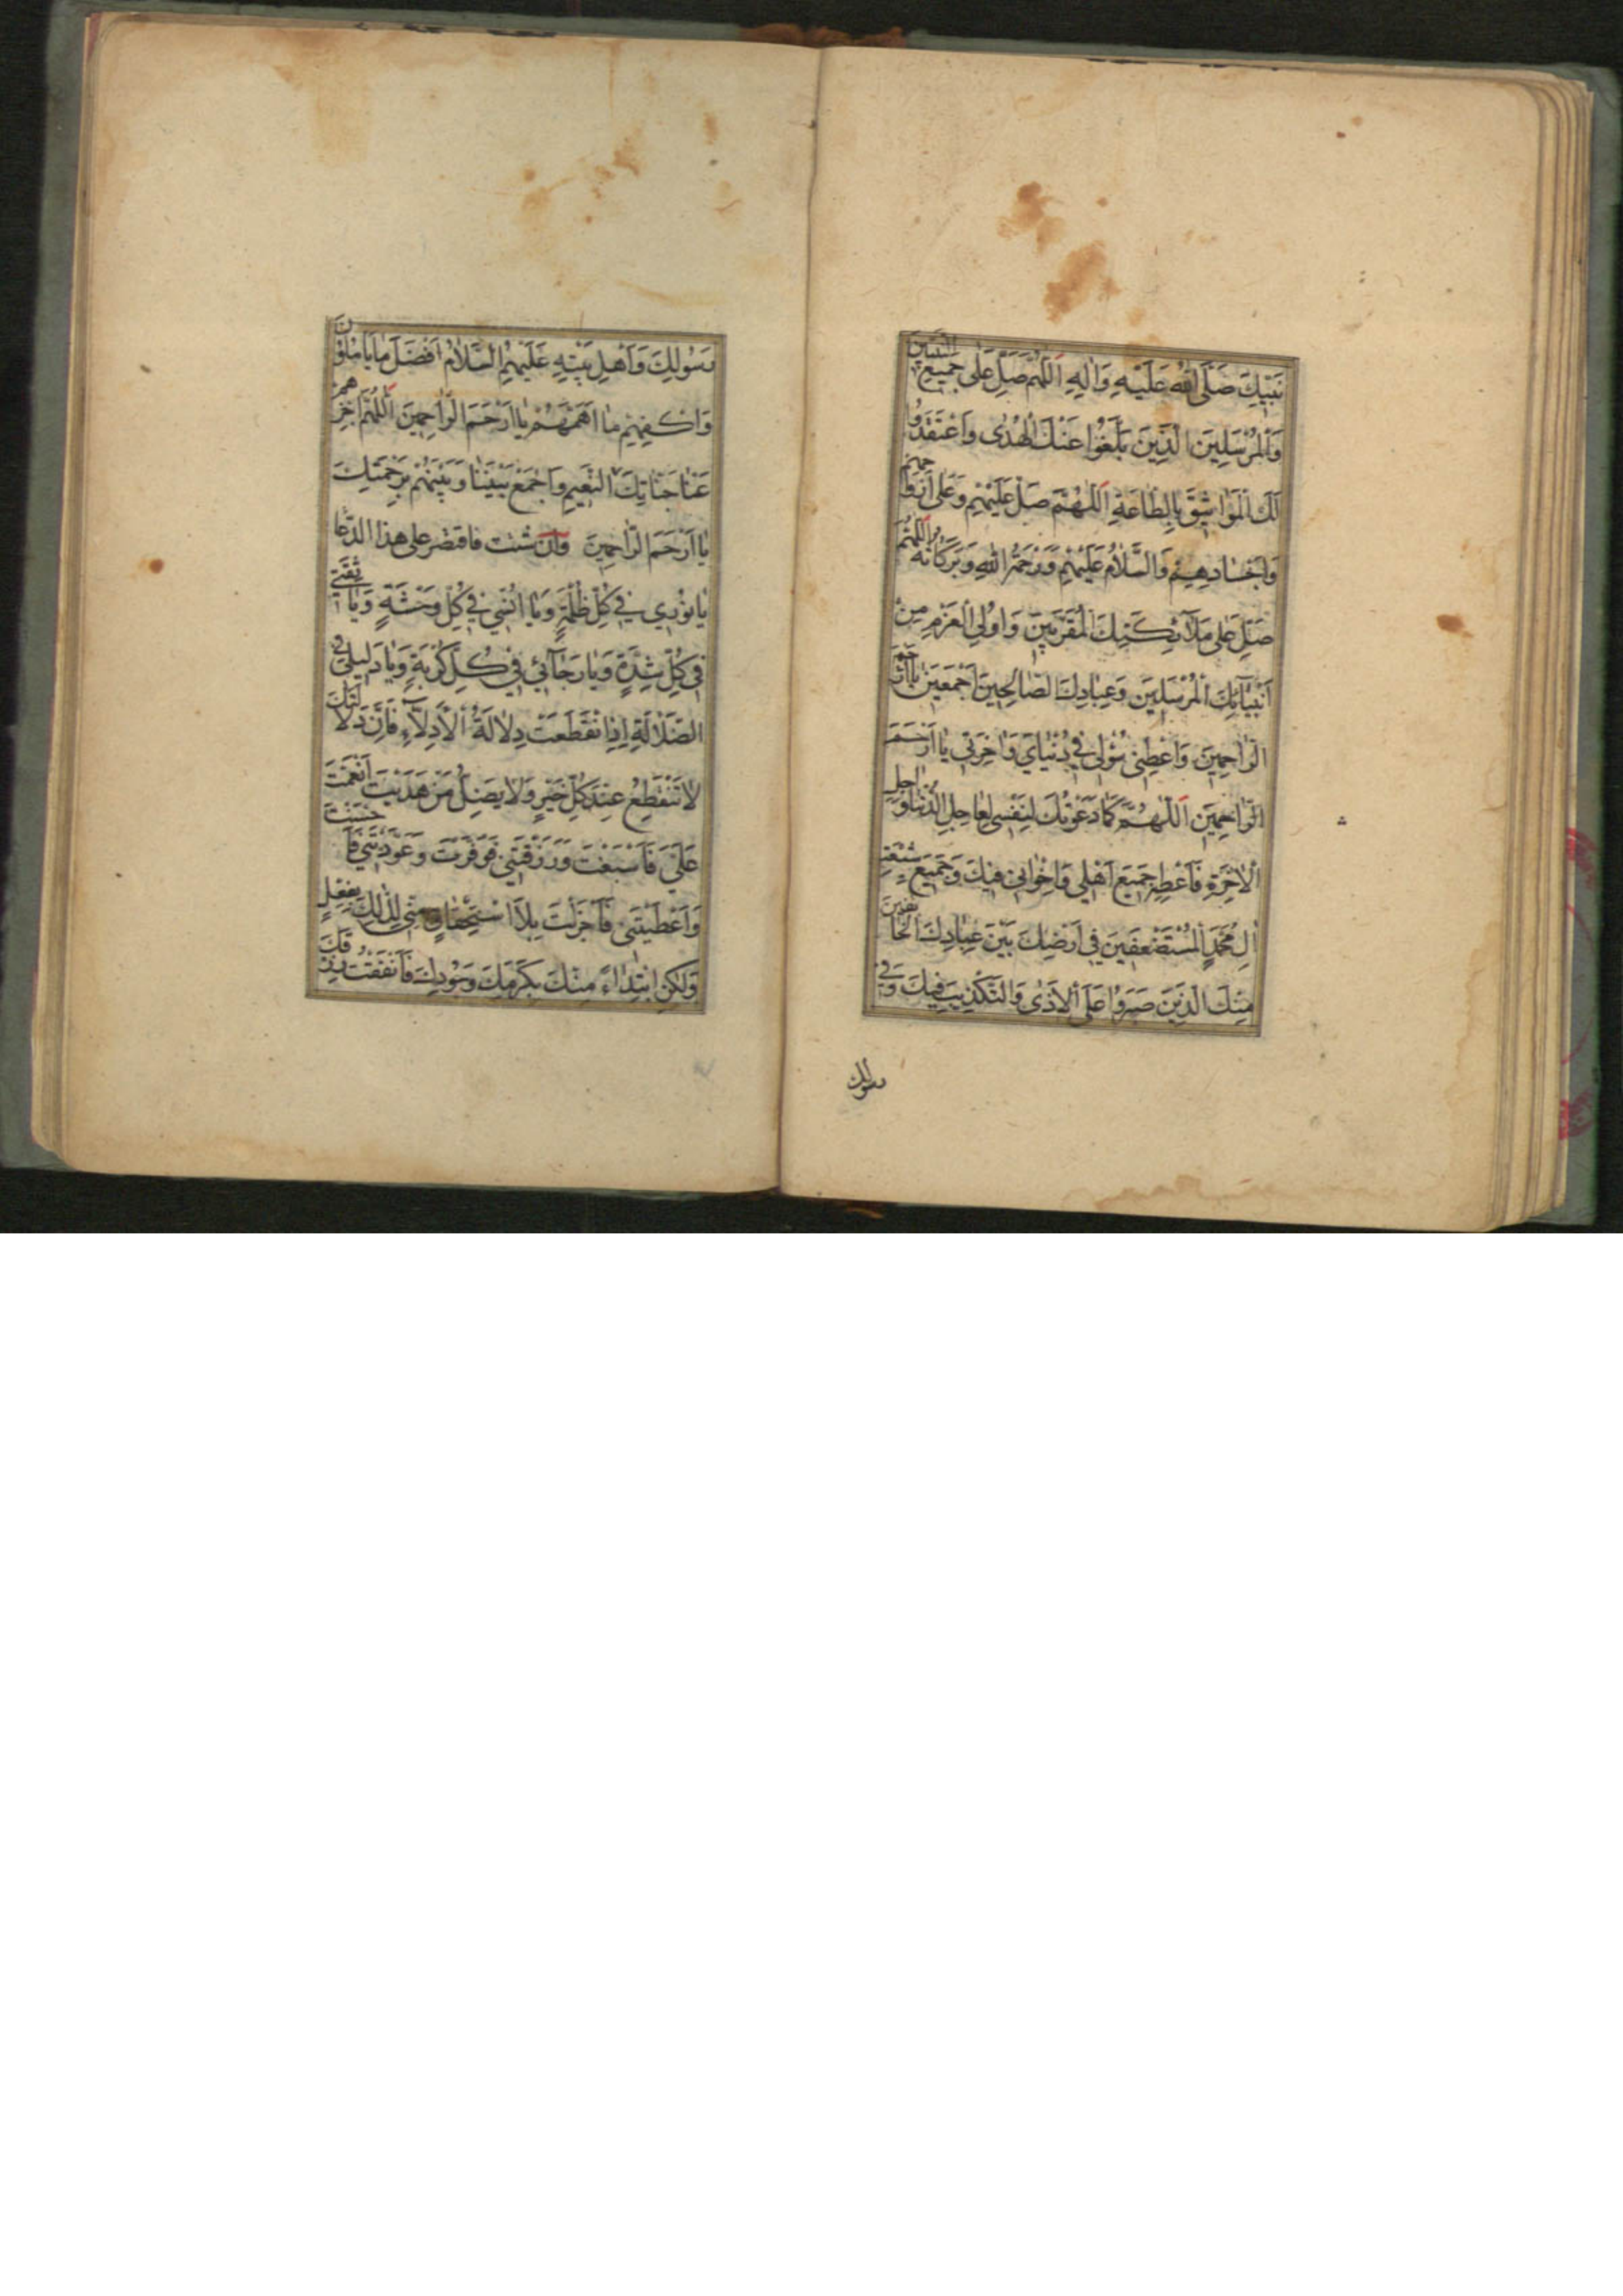 نَبِيِّكَ صَلَّى اللهُ عَلَيْهِ وَاٰلِهِ اَللّٰهُمَّ صَلِّ عَلٰى جَمِيعِ النَّبِيِّينَ
وَالْمُرْسَلِينَ الَّذِينَ بَلَّغُوا عَنْكَ الْهُدٰى وَاعْتَقَدُوا
لَكَ الْمَوَاثِيقَ بِالطَّاعَةِ اَللّٰهُمَّ صَلِّ عَلَيْهِمْ وَعَلٰى اَرْوَاحِهِمْ
وَاَجْسَادِهِمْ وَالسَّلَامُ عَلَيْهِمْ وَرَحْمَةُ اللهِ وَبَرَكَاتُهُ اَللّٰهُمَّ
صَلِّ عَلٰى مَلَآئِكَتِكَ الْمُقَرَّبِينَ وَاُولِي الْعَزْمِ مِنْ
اَنْبِيَآئِكَ الْمُرْسَلِينَ وَعِبَادِكَ الصَّالِحِينَ اَجْمَعِينَ يَا اَرْحَمَ
الرَّاحِمِينَ وَاعْطِنِي سُؤْلِي فِي دُنْيَايَ وَاٰخِرَتِي يَا اَرْحَمَ
الرَّاحِمِينَ اَللّٰهُمَّ كَمَا دَعَوْتُكَ لِنَفْسِي لِعَاجِلِ الدُّنْيَا وَاٰجِلِ
الْاٰخِرَةِ فَاَعْطِ جَمِيعَ اَهْلِي وَاِخْوَانِي فِيكَ وَجَمِيعَ شِيعَةِ
اٰلِ مُحَمَّدٍ الْمُسْتَضْعَفِينَ فِي اَرْضِكَ بَيْنَ عِبَادِكَ الْخَائِفِينَ
مِنْكَ الَّذِينَ صَبَرُوا عَلَى الْاَذٰى وَالتَّكْذِيبِ فِيكَ وَفِي
رسولك
رَسُولِكَ وَاَهْلِ بَيْتِهِ عَلَيْهِمُ السَّلَامُ اَفْضَلَ مَا يَاْمُلُونَ
وَاكْفِهِمْ مَا اَهَمَّهُمْ يَا اَرْحَمَ الرَّاحِمِينَ اَللّٰهُمَّ اجْزِهِمْ
عَنَّا جَنَّاتِكَ النَّعِيمِ وَاجْمَعْ بَيْنَنَا وَبَيْنَهُمْ بِرَحْمَتِكَ
يَا اَرْحَمَ الرَّاحِمِينَ وان شئت فاقتصر على هذا الدعا
يَا نُورِي فِي كُلِّ ظُلْمَةٍ وَيَا اُنْسِي فِي كُلِّ وَحْشَةٍ وَيَا ثِقَتِي
فِي كُلِّ شِدَّةٍ وَيَا رَجَآئِي فِي كُلِّ كُرْبَةٍ وَيَا دَلِيلِي فِي
الضَّلَالَةِ اِذَا انْقَطَعَتْ دِلَالَةُ الْاَدِلَّآءِ فَاِنَّ دَلَالَتَكَ
لَا تَنْقَطِعُ عِنْدَ كُلِّ خَيْرٍ وَلَا يَضِلُّ مَنْ هَدَيْتَ اَنْعَمْتَ
عَلَيَّ فَاَسْبَغْتَ وَرَزَقْتَنِي فَوَفَّرْتَ وَعَوَّدْتَنِي فَاَحْسَنْتَ
وَاَعْطَيْتَنِي فَاَجْزَلْتَ بِلَا اسْتِحْقَاقٍ مِنِّي لِذٰلِكَ بِفِعْلٍ
وَلٰكِنِ ابْتِدَاءً مِنْكَ بِكَرَمِكَ وَجُودِكَ فَاَنْفَقْتُ رِزْقَكَ